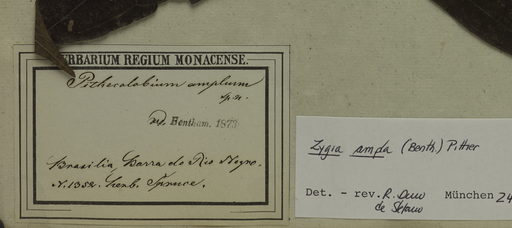 HERBARIUM REGIUM MONACENSE.
Pithecolobium amplum
sp. n.
Bentham. 1873
Brasilia, Barra do Rio Negro.
N. 1352. herb. Spruce.
Zygia ampla (Benth.) Pittier
Det. - rev. R. München 24
de Stefano